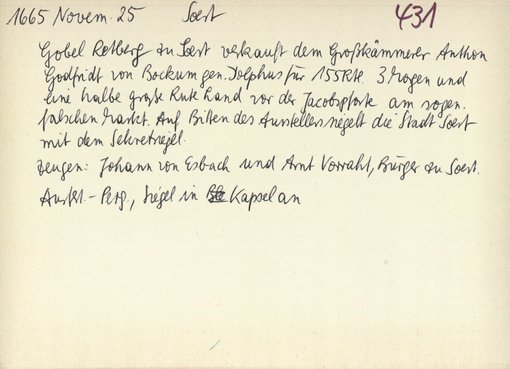 1665 Novem. 25 Soest 431
Gobel Rotberg zu Soest verkauft dem Großkämmerer Anthon
Godfridt von Bockum gen. Dolphus für 155 Rtl. 3 Morgen und
eine halbe große Rute Land vor der Jacobspforte am sogen.
falschen Markt. Auf Bitten des Ausstellers siegelt die Stadt Soest
mit dem Sekretsiegel.
Zeugen: Johann von Esbach und Arnt Vorraht, Bürger zu Soest.
Ausf. - Perg., Siegel in Kapsel an